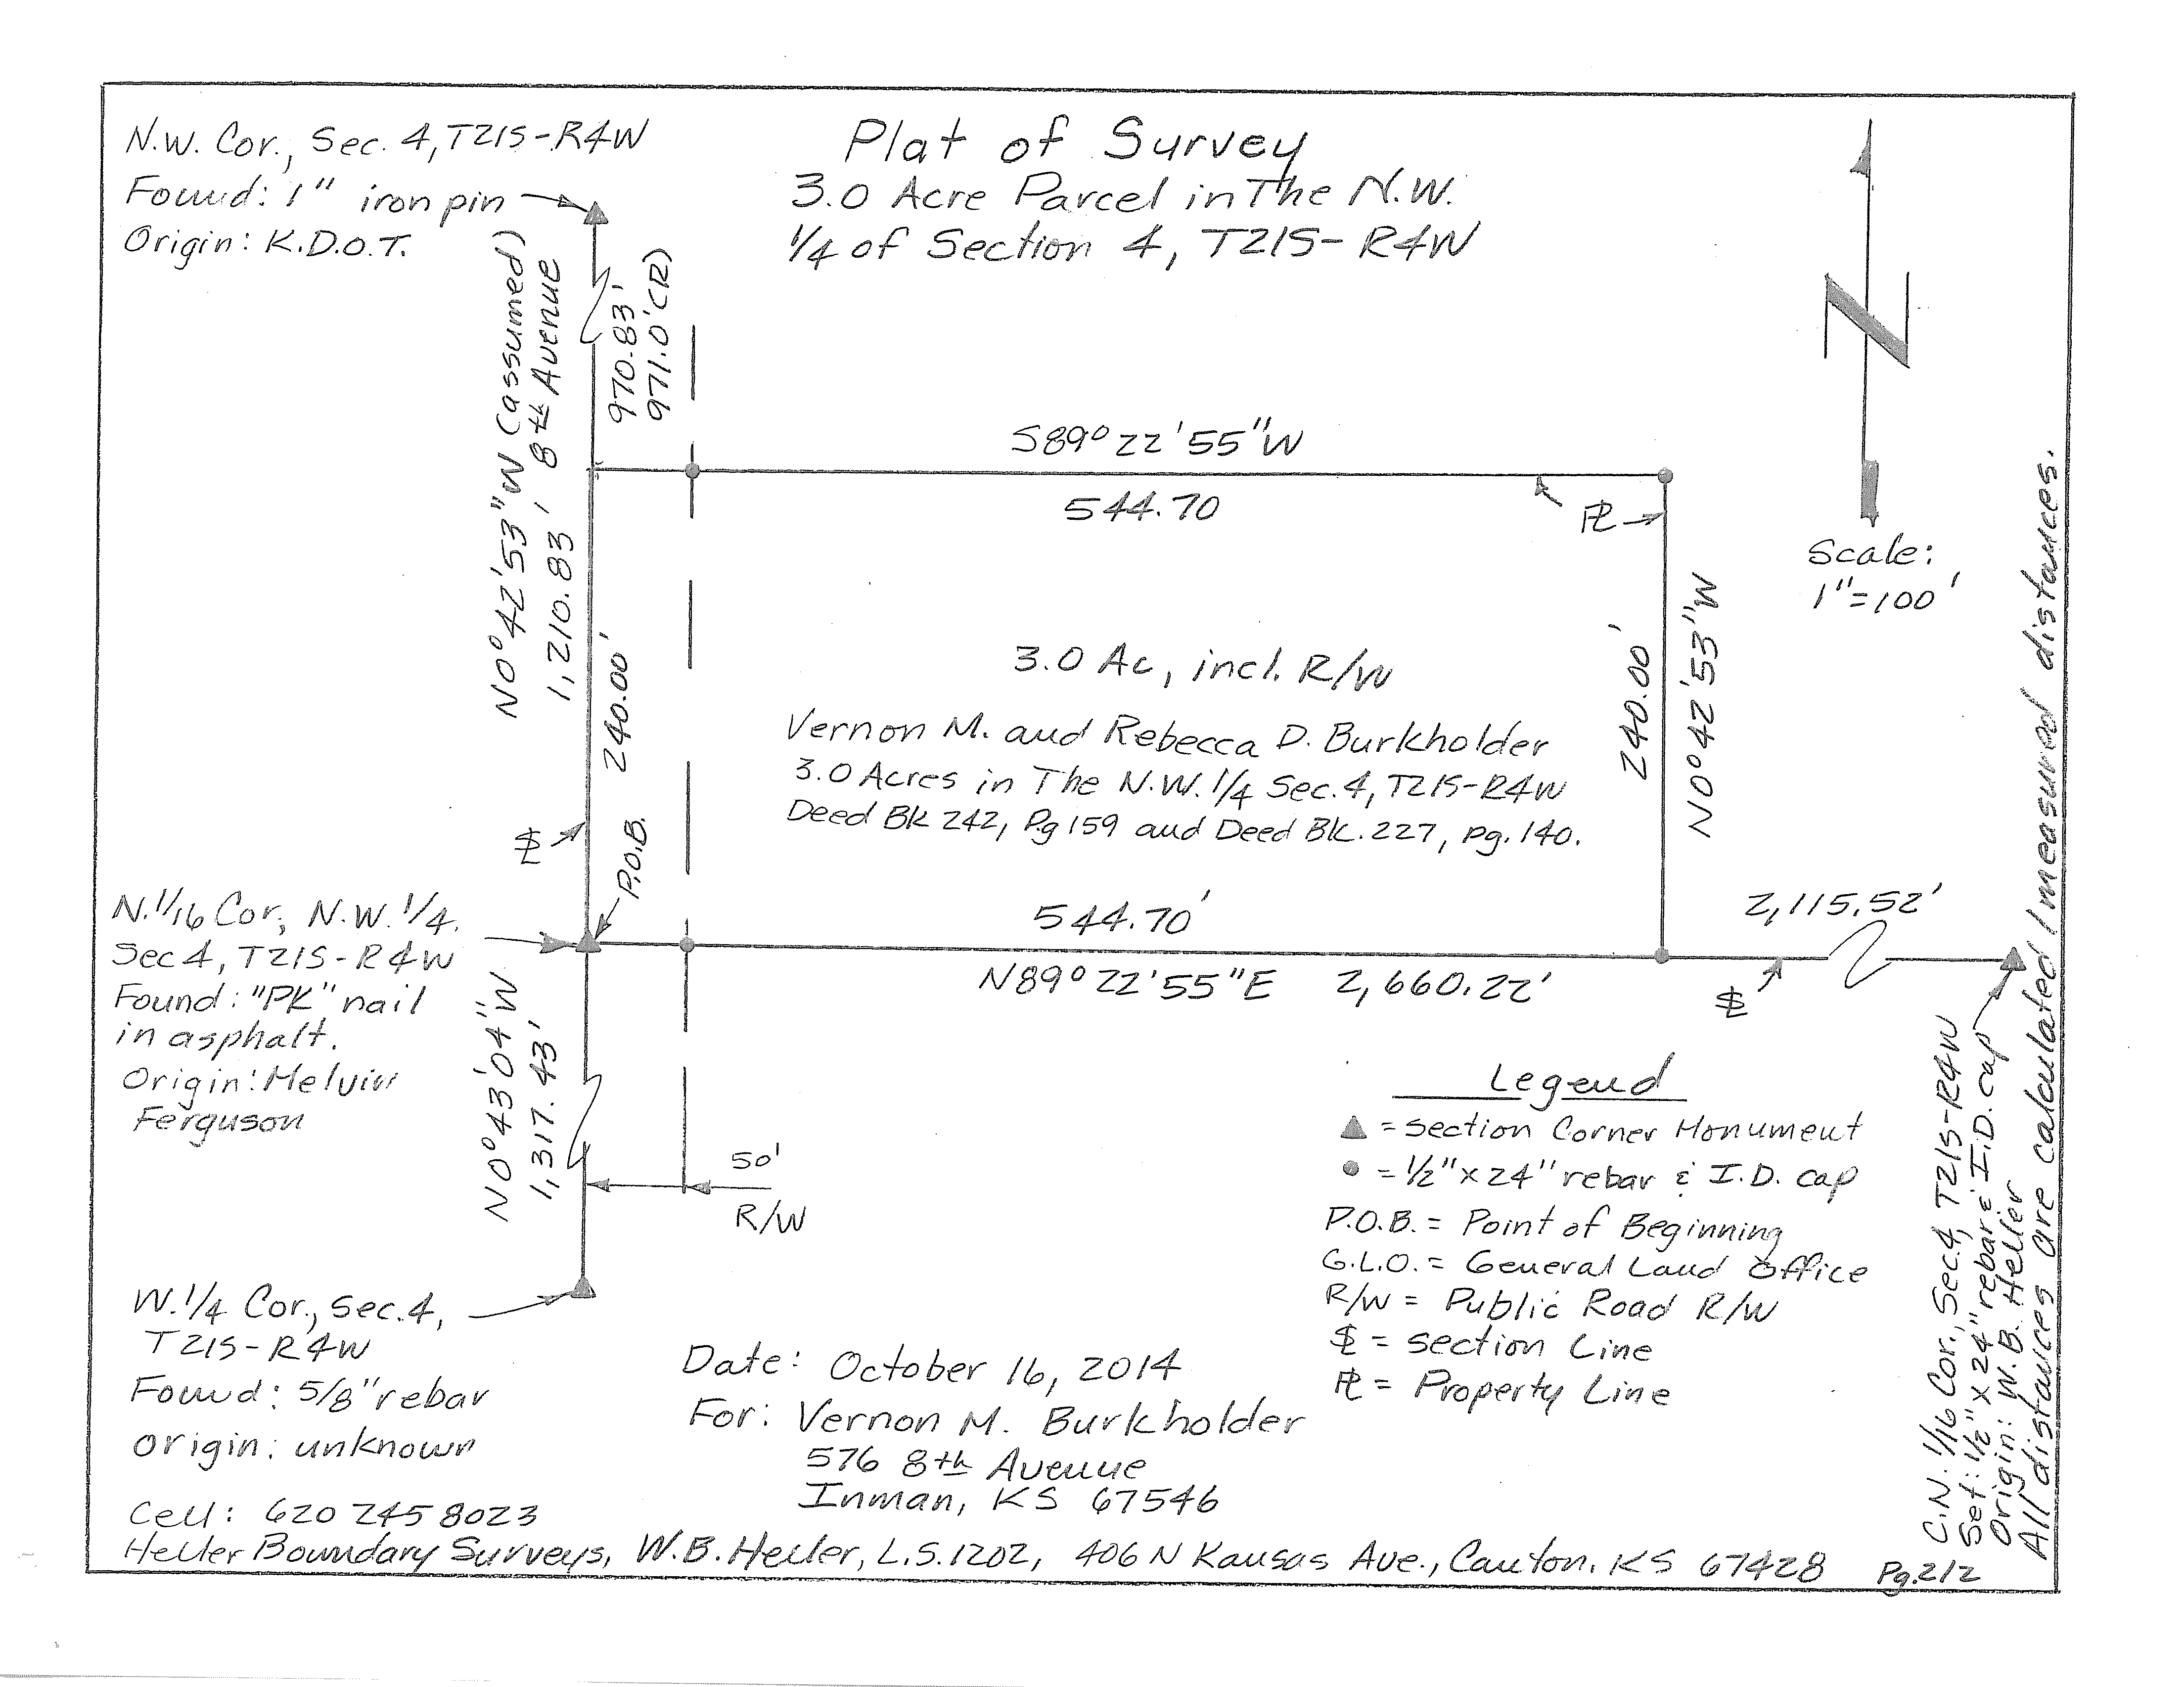 N.W. Cor., Sec. 4, T21S-R4W
Found: 1" iron pin
Origin: K.D.O.T.
Plat of Survey
3.0 Acre Parcel in The N.W.
1/4 of Section 4, T21S-R4W
N0°42'53"W (assumed)
1,210.83' 8th Avenue
970.83'
971.0'(R)
S89°22'55"W
544.70
PL
Scale:
1"=100'
240.00'
3.0 Ac, incl. R/W
Vernon M. and Rebecca D. Burkholder
3.0 Acres in The N.W. 1/4 Sec. 4, T21S-R4W
Deed Bk 242, Pg 159 and Deed Bk. 227, pg. 140.
240.00'
N0°42'53"W
SL
P.O.B.
N. 1/16 Cor., N.W. 1/4.
Sec 4, T21S-R4W
Found: "PK" nail
in asphalt.
Origin: Melvin
Ferguson
544.70'
N89°22'55"E 2,660.22'
2,115.52'
SL
N0°43'04"W
1,317.43'
50'
R/W
W. 1/4 Cor., Sec. 4,
T21S-R4W
Found: 5/8" rebar
origin: unknown
Legend
▲ = Section Corner Monument
● = 1/2" x 24" rebar & I.D. cap
P.O.B. = Point of Beginning
G.L.O. = General Land Office
R/W = Public Road R/W
SL = Section Line
PL = Property Line
Date: October 16, 2014
For: Vernon M. Burkholder
576 8th Avenue
Inman, KS 67546
C.N. 1/16 Cor., Sec. 4, T21S-R4W
Set: 1/2" x 24" rebar & I.D. cap
Origin: W.B. Heller
All distances are calculated/measured distances.
Cell: 620 245 8023
Heller Boundary Surveys, W.B. Heller, L.S. 1202, 406 N Kansas Ave., Canton, KS 67428 Pg. 2/2